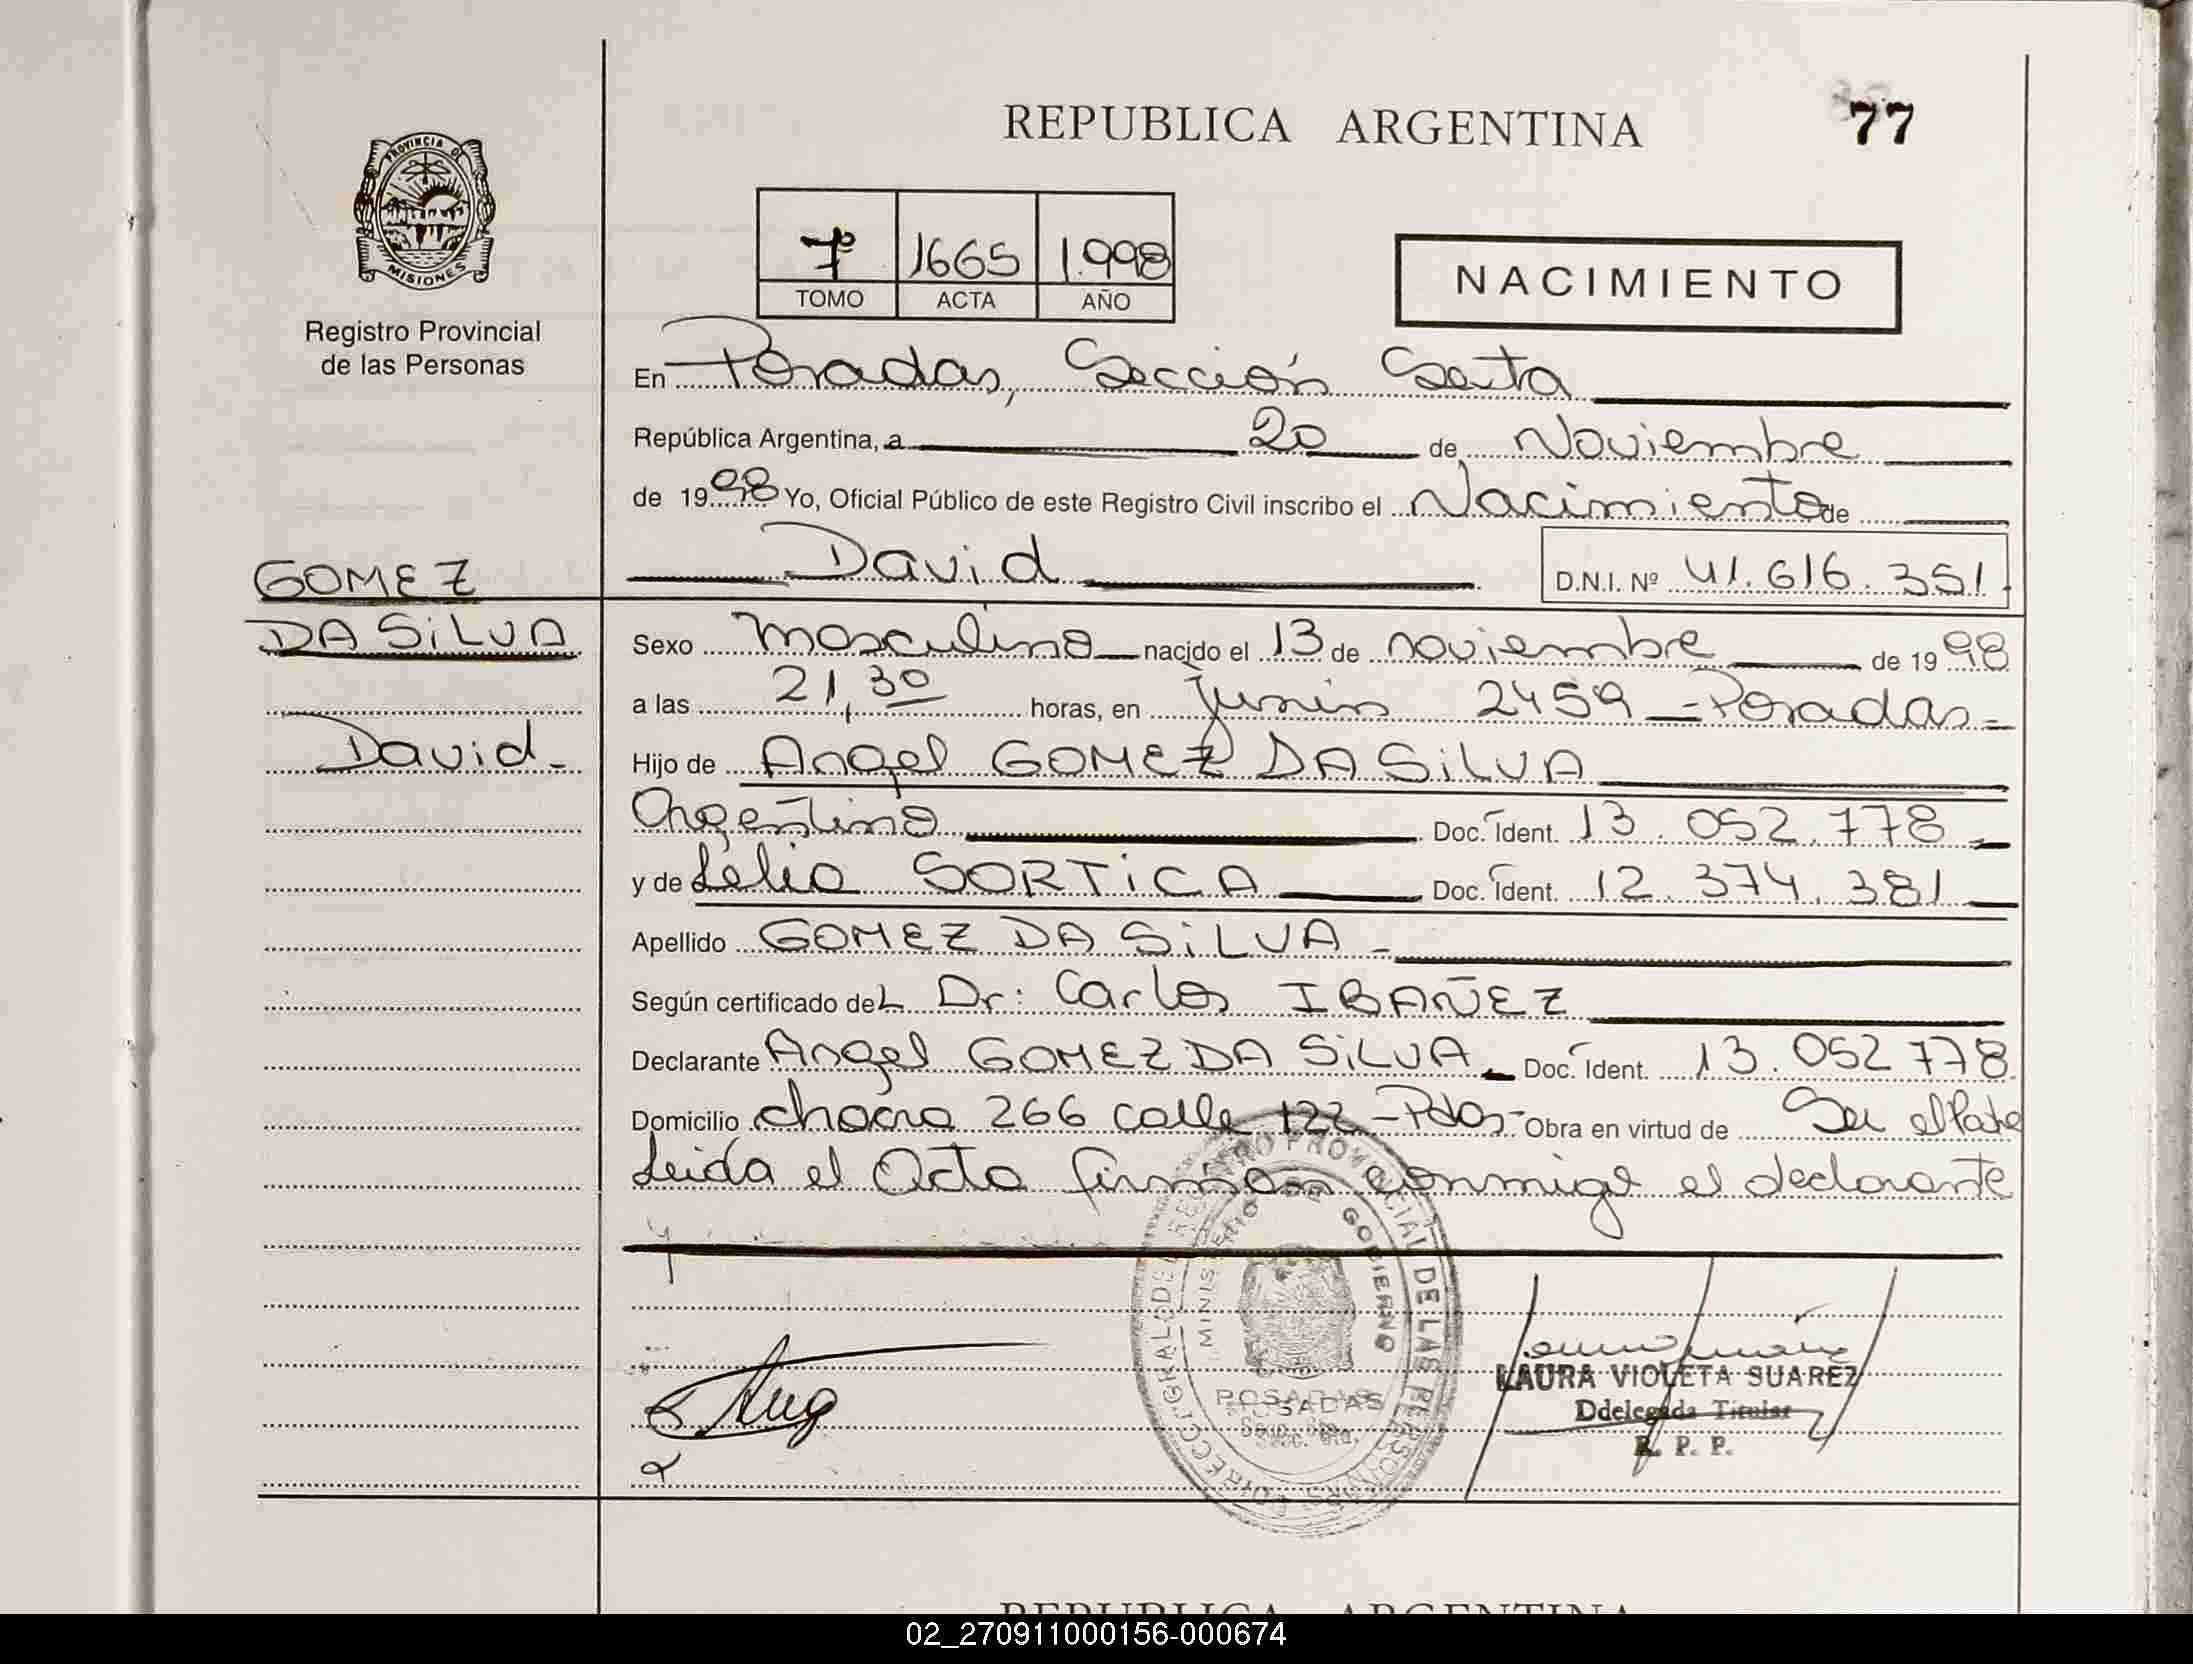 REPUBLICA ARGENTINA
77
PROVINCIA DE
MISIONES
Registro Provincial
de las Personas
7º 1665 1.998
TOMO ACTA AÑO
NACIMIENTO
En Posadas, Sección Sexta
República Argentina, a 20 de Noviembre
de 1998 Yo, Oficial Público de este Registro Civil inscribo el Nacimiento de
David D.N.I. Nº 41.616.351.
GOMEZ
DA SiLVA
David-
Sexo masculino nacido el 13 de noviembre de 1998
a las 21,30 horas, en Junin 2459 - Posadas-
Hijo de Angel GOMEZ DA SiLVA
Argentino Doc. Ident. 13.052.778
y de Lelia SORTiCA Doc. Ident. 12.374.381
Apellido GOMEZ DA SiLVA -
Según certificado del Dr: Carlos IBAÑEZ
Declarante Angel GOMEZ DA SiLVA Doc. Ident. 13.052 778
Domicilio chacra 266 calle 122 - Pdas- Obra en virtud de Ser el Padre
Leida el Acta firman conmigo el declarante
y
DIRECC. GRAL. DEL REGISTRO PROVINCIAL DE LAS PERSONAS
MINISTERIO DE GOBIERNO
POSADAS
Secc. 6ta.
LAURA VIOLETA SUAREZ
Ddelegada Titular
R. P. P.
REPUBLICA ARGENTINA
02_270911000156-000674